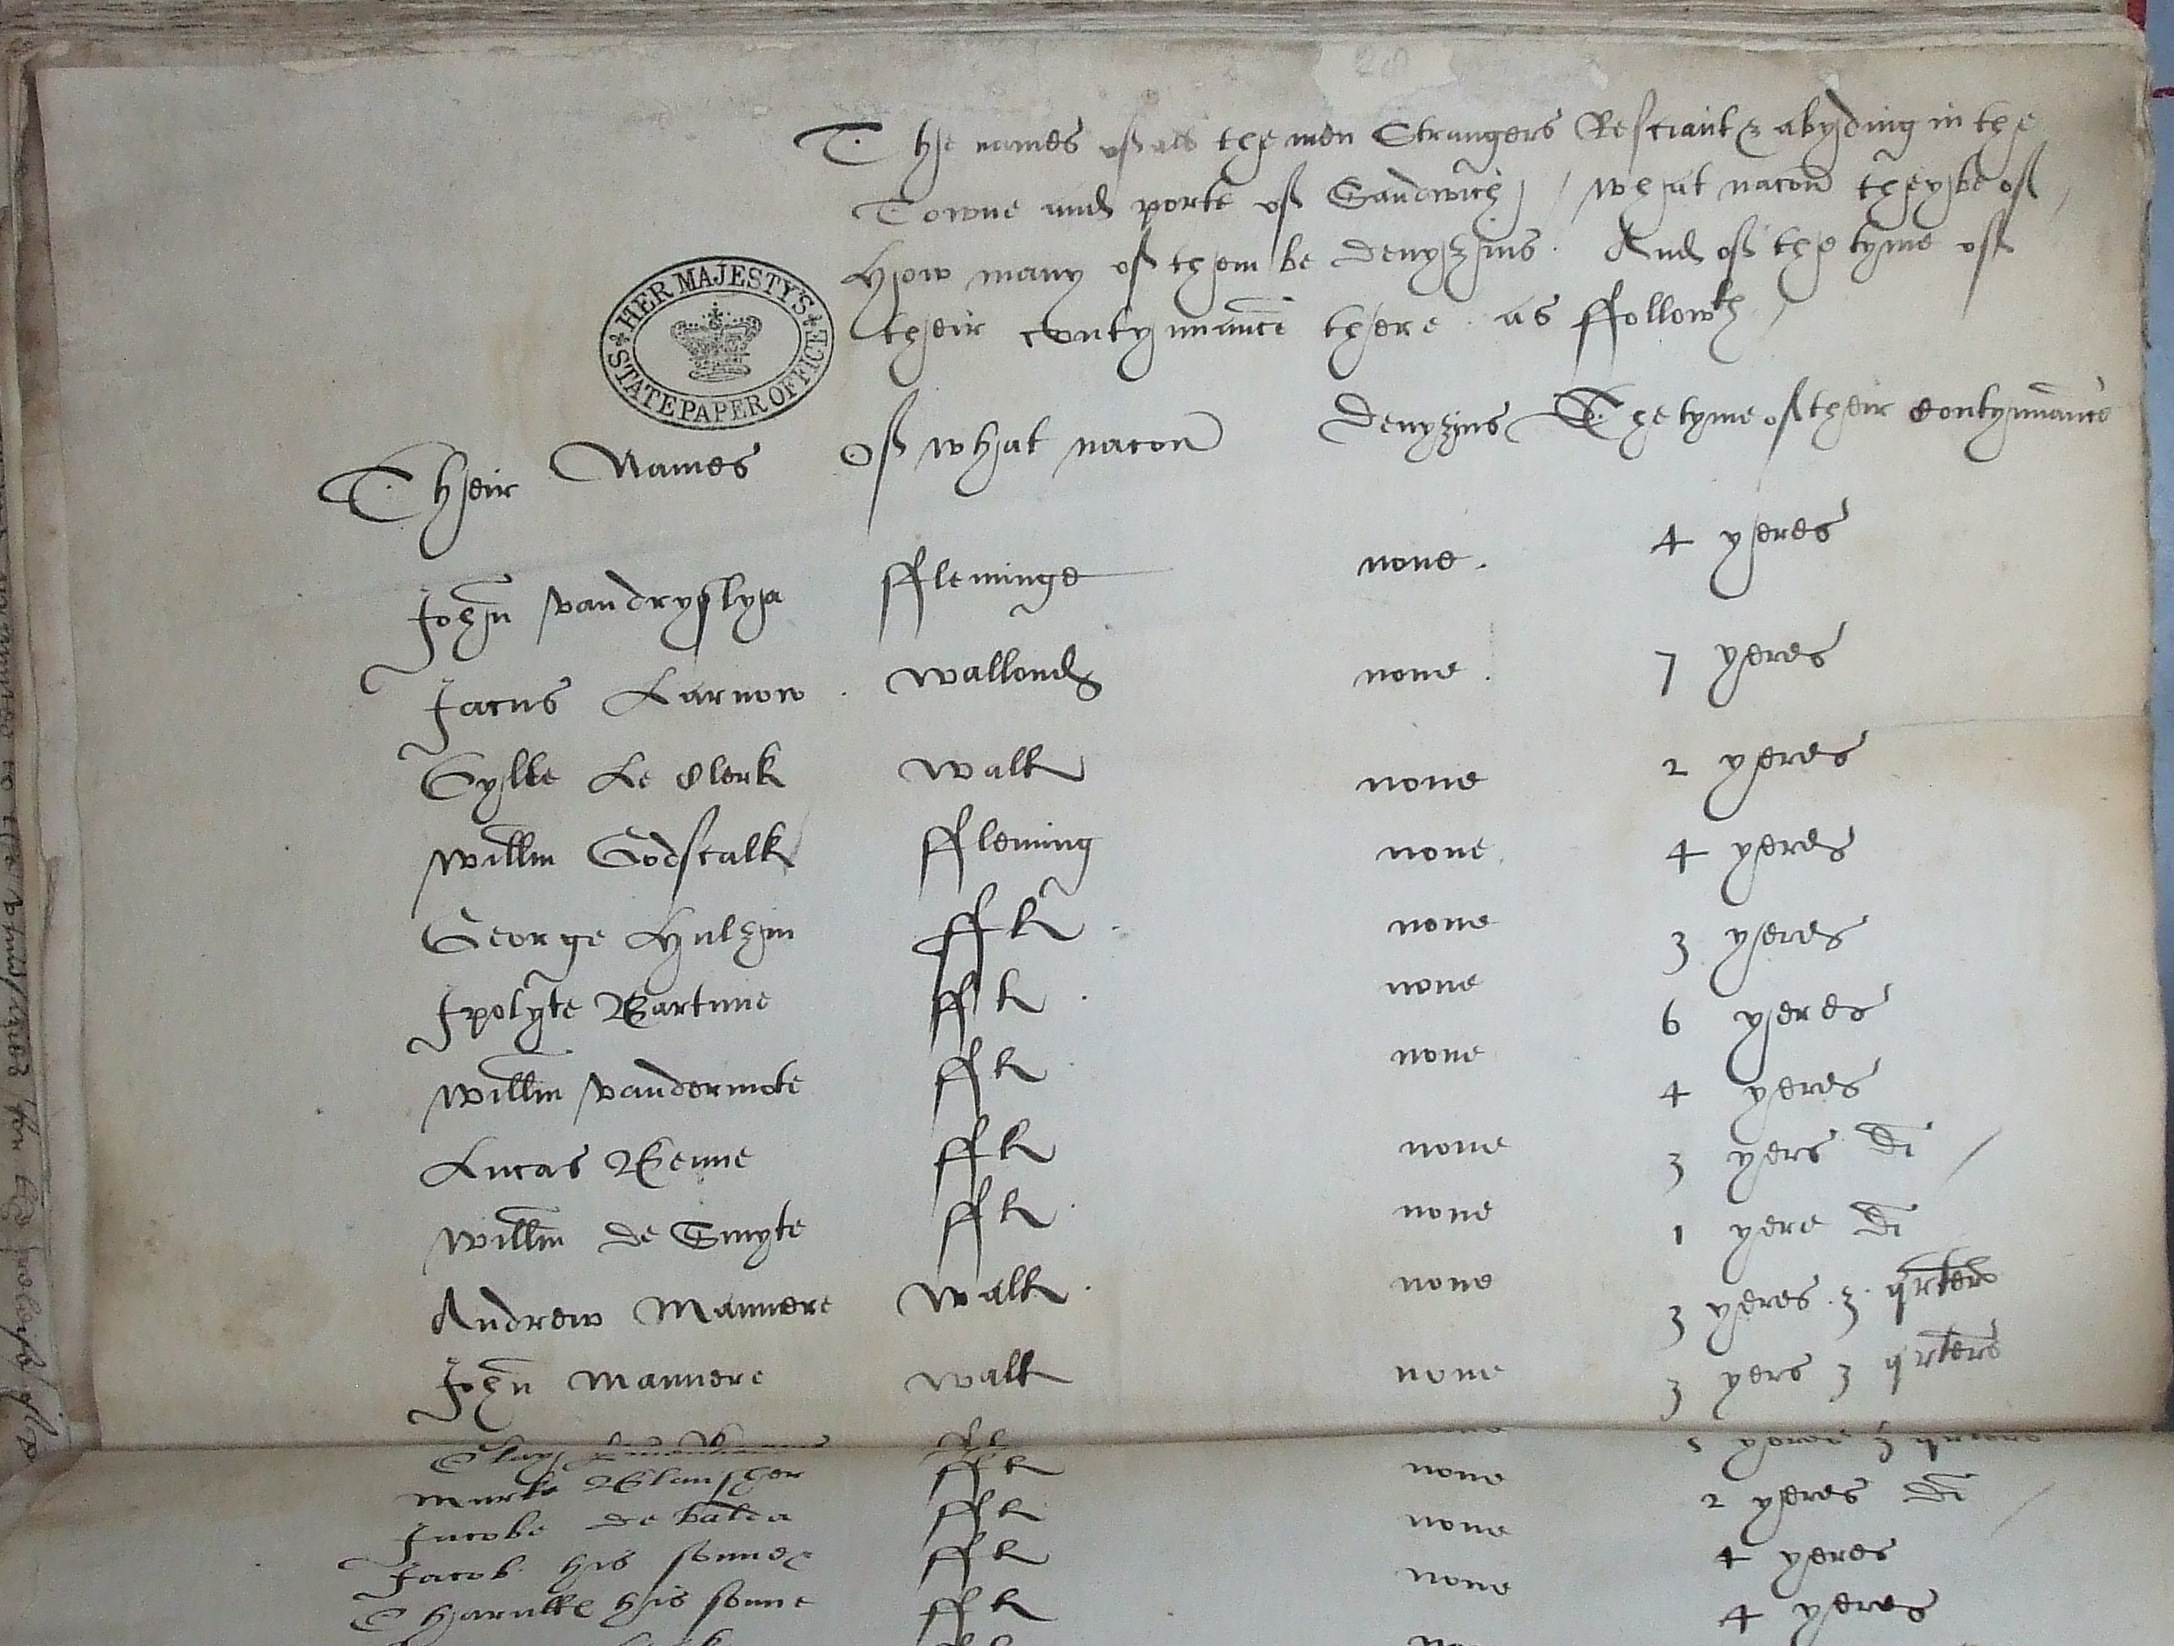 The names of all the men Strangers Resciant & abyding in the
Towne and porte of Sandwich / what nacon they be of /
How many of them be denyzins. And of the tyme of
their contynuance there as ffollowth /
HER MAJESTY'S
STATE PAPER OFFICE
Their Names Of what nacon Denyzins The tyme of their Contynuance
John vandryslya ffleminge none. 4 yeres
Jacus Larnow. wallond none. 7 yeres
Gylle Le Clerk wall none 2 yeres
Willm Godscalk ffleming none 4 yeres
George Hulzin ffl. none 3 yeres
Ipolyte Bartine ffl. none 6 yeres
Willm vandermote ffl. none 4 yeres
Lucas Benne ffl none 3 yers di /
Willm de Smyte ffl. none 1 yere di
Andrew Mannere wall. none 3 yeres. 3. qrters
John Mannere wall none 3 yers 3 qrters
ffl none yeres 3 qrters
Marke Blanscher ffl none 2 yeres di /
Jacobe de ffl none 4 yeres
Jacob his sonne ffl none 4 yeres
his sonne ffl